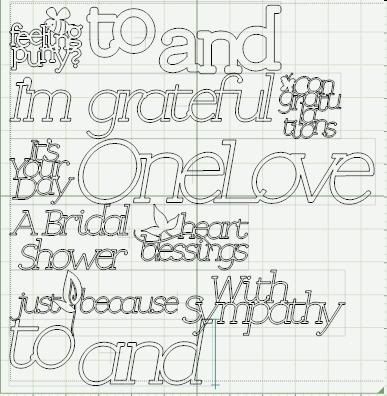 feeling puny?
to
and
I'm grateful
con
gratu
la
tions
It's
Your
Day
OneLove
A Bridal
Shower
heart
blessings
just because
With
sympathy
to
and